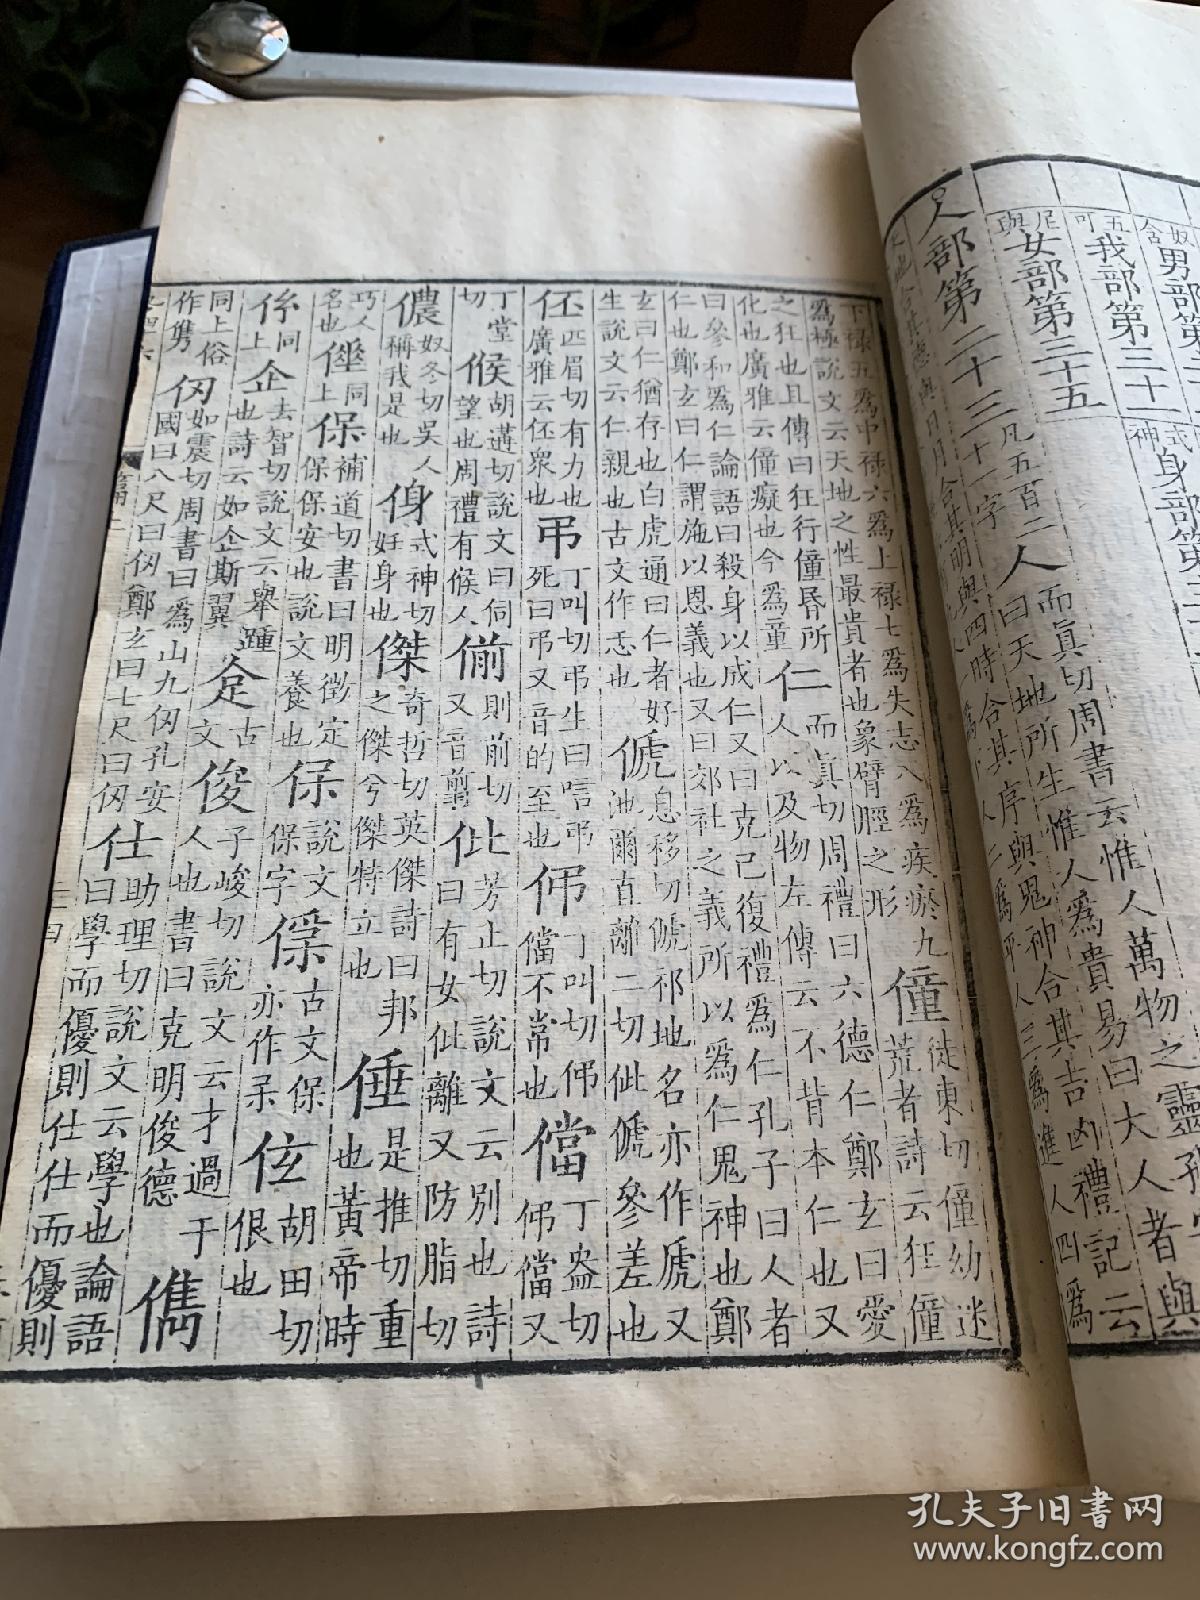 奴含男部第
五可我部第三十一 式神身部第三
尼與女部第三十五
人部第二十三 凡五百二十一字 人 而眞切周書云惟人萬物之靈孔
曰天地所生惟人爲貴易曰大人者與
天地合其德與日月合其明與四時合其序與鬼神合其吉凶禮記云
人二爲 人三爲進人四爲
下祿五爲中祿六爲上祿七爲失志八爲疾瘀九
爲極說文云天地之性最貴者也象臂脛之形
僮 徒東切僮幼迷
荒者詩云狂僮
之狂也且傳曰狂行僮昬所
化也廣雅云僮癡也今爲童
仁 而眞切周禮曰六德仁鄭玄曰愛
人以及物左傳云不背本仁也又
曰參和爲仁論語曰殺身以成仁又曰克己復禮爲仁孔子曰人者
仁也鄭玄曰仁謂施以恩義也又曰郊社之義所以爲仁鬼神也鄭
玄曰仁猶存也白虎通曰仁者好
生說文云仁親也古文作忎也
傂 息移切傂祁地名亦作虒又
池爾直離二切佌傂參差也
伾 匹眉切有力也
廣雅云伾眾也
弔 丁叫切弔生曰唁弔
死曰弔又音的至也
佴 丁叫切
儅不常也
儅 丁盎切
儅又
丁堂
切
候 胡遘切說文曰伺
望也周禮有候人
偂 則前切
又音翦
仳 芳止切說文云別也詩
曰有女仳離又防脂切
儂 奴冬切吳人
稱我是也
㑗 式神切
妊身也
傑 奇哲切英傑詩曰邦
之傑兮傑特立也
倕 是推切重
也黃帝時
巧人
名也
同
上
保 補道切書曰明徵定
保保安也說文養也
保 說文
保字
㑱 古文保
亦作呆
伭 胡田切
很也
同
上
企 去智切說文云舉踵
也詩云如企斯翼
古
文
俊 子峻切說文云才過于
人也書曰克明俊德
儁
同上俗
作㑺
仭 如震切周書曰爲山九仭孔安
國曰八尺曰仭鄭玄曰七尺曰仭
仕 助理切說文云學也論語
曰學而優則仕仕而優則
孔夫子旧书网
www.kongfz.com